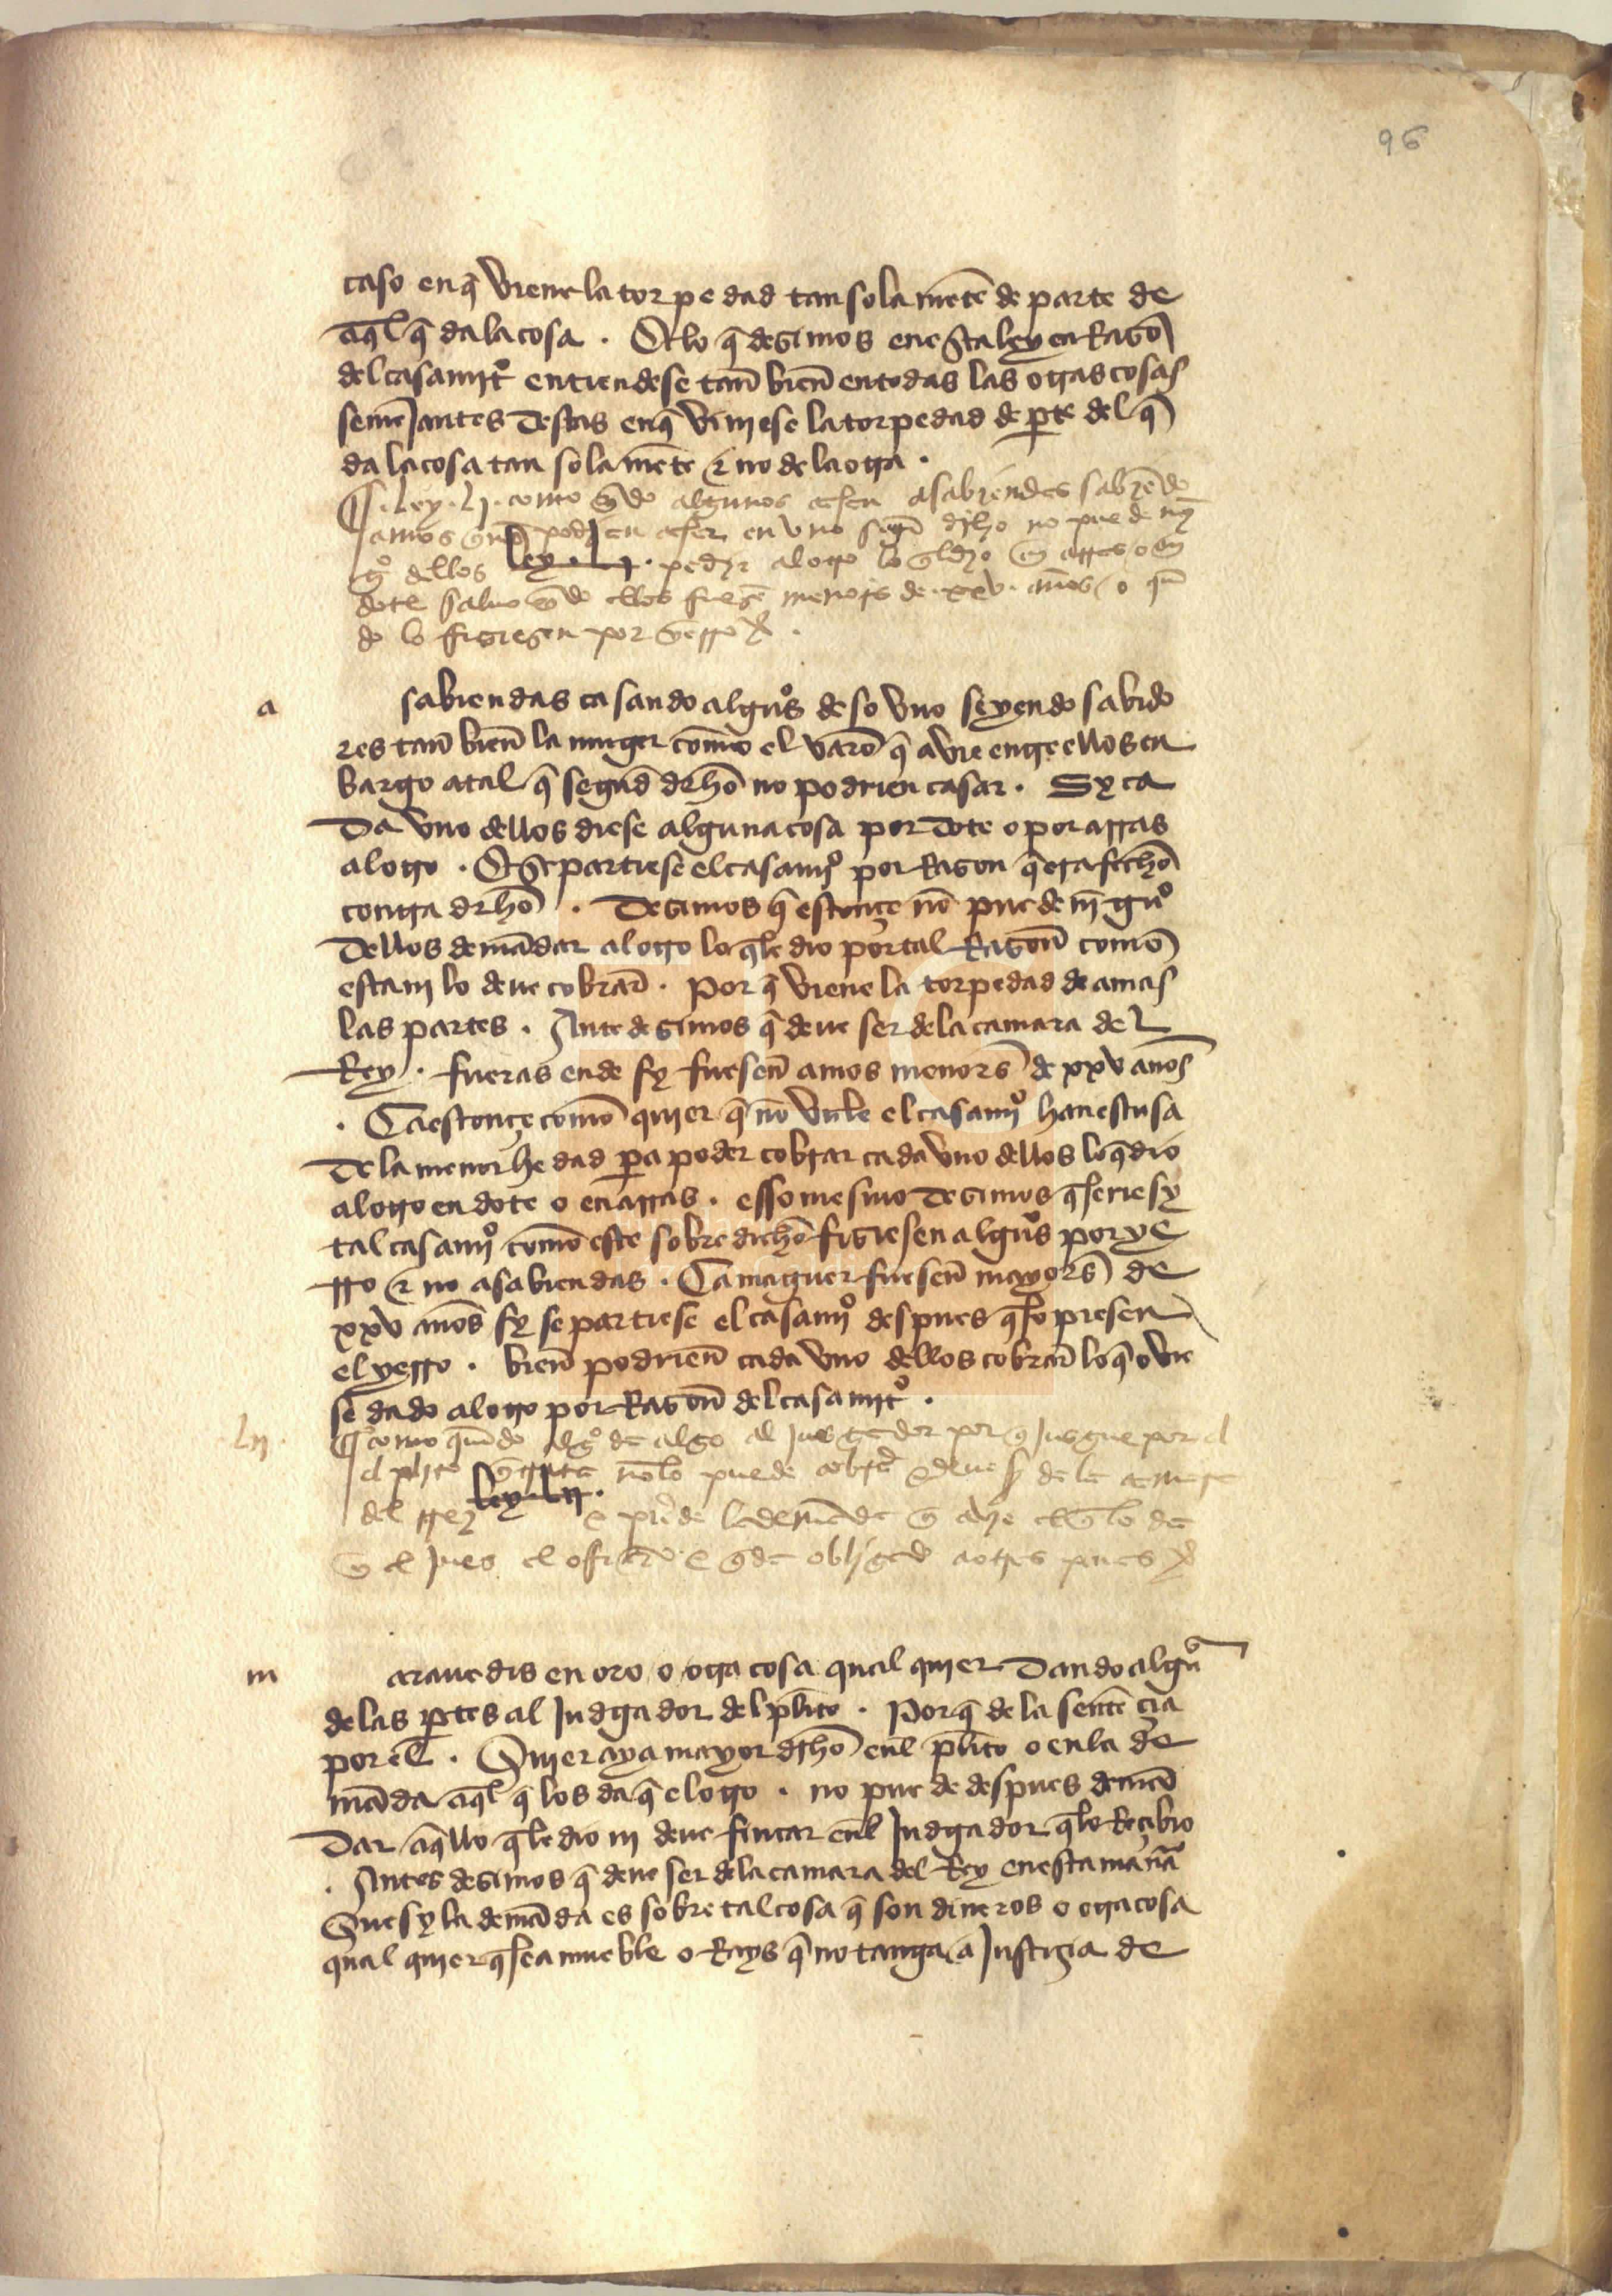 96
caso enq̃ viene la torpedad tan sola mẽte de parte de
aql̃ q̃ da la cosa . Et lo q̃ desimos en esta ley en Razõ
del casamjẽto entiendese tañ bieñ en todas las otras cosas
semejantes destas enq̃ vinjese la torpedad de parte del q̃
da la cosa tan sola mẽte & no de la otra .
ley . lj . como algunos asabiendas
amos en vno segũ no puede njn
gº dellos ley . lj . pedyr al otro
dote saluo ellos fuesẽ menores de . xxv . años o quã
do lo fiziesen por
a sabiendas casando algũos de so vno seyendo sabido
res tañ bieñ la muger como el varõ q̃ avie entre ellos en
bargo atal q̃ segũd drho no podrien casar . Sy ca
da vno dellos diese alguna cosa por dote o por arras
al otro . Et se partiese el casamº por Razon q̃ era fecho
contra drho . Desimos q̃ estonçe nõ puede nĩgũo
dellos demãdar al otro lo q̃ le dio por tal Razoñ como
esta nj lo deue cobrar . Por q̃ viene la torpedad de amas
las partes . Ante desimos q̃ deue ser de la camara del
Rey . fueras ende sy fueseñ amos menors de xxv años
. Ca estonçe como quier q̃ nõ vale el casamº han escusa
de la menor hedad para poder cobrar cada vno dellos lo q̃ dio
al otro en dote o en arras . esso mesmo desimos q̃ serie sy
tal casamº como este sobre dicho fiziesen algũos por ye
rro & no asabiendas . Ca maguer fueseñ mayors de
xxv años sy se partiese el casamº despues q̃ sopiesen
el yerro . bieñ podrieñ cada vno dellos cobrar lo q̃ ovie
se dado al otro por Razoñ del casamjẽtº .
lij
como quãdo algº da algo al jusgador por q̃ jusgue por el
el plito nõ lo puede cobrar de la camara
del rrey ley . lij . & le demãda
el jues el ofiçio & obligado a otras penas
m arauedis en oro o otra cosa qual quier dando algũa
de las partes al Judgador del plito . Porq̃ de la sentẽçia
por el . Quier aya mayor drho enl plito o en la de
mãda aql̃ q̃ los da q̃ el otro . no puede despues demã
dar aq̃llo q̃ le dio nj deue fincar enl Judgador q̃ lo Reçibio
. Antes desimos q̃ deue ser de la camara del Rey en esta manã
Que sy la demãda es sobre tal cosa q̃ son dineros o otra cosa
qual quier q̃ sea mueble o Rays q̃ no tanga a Justiçia de